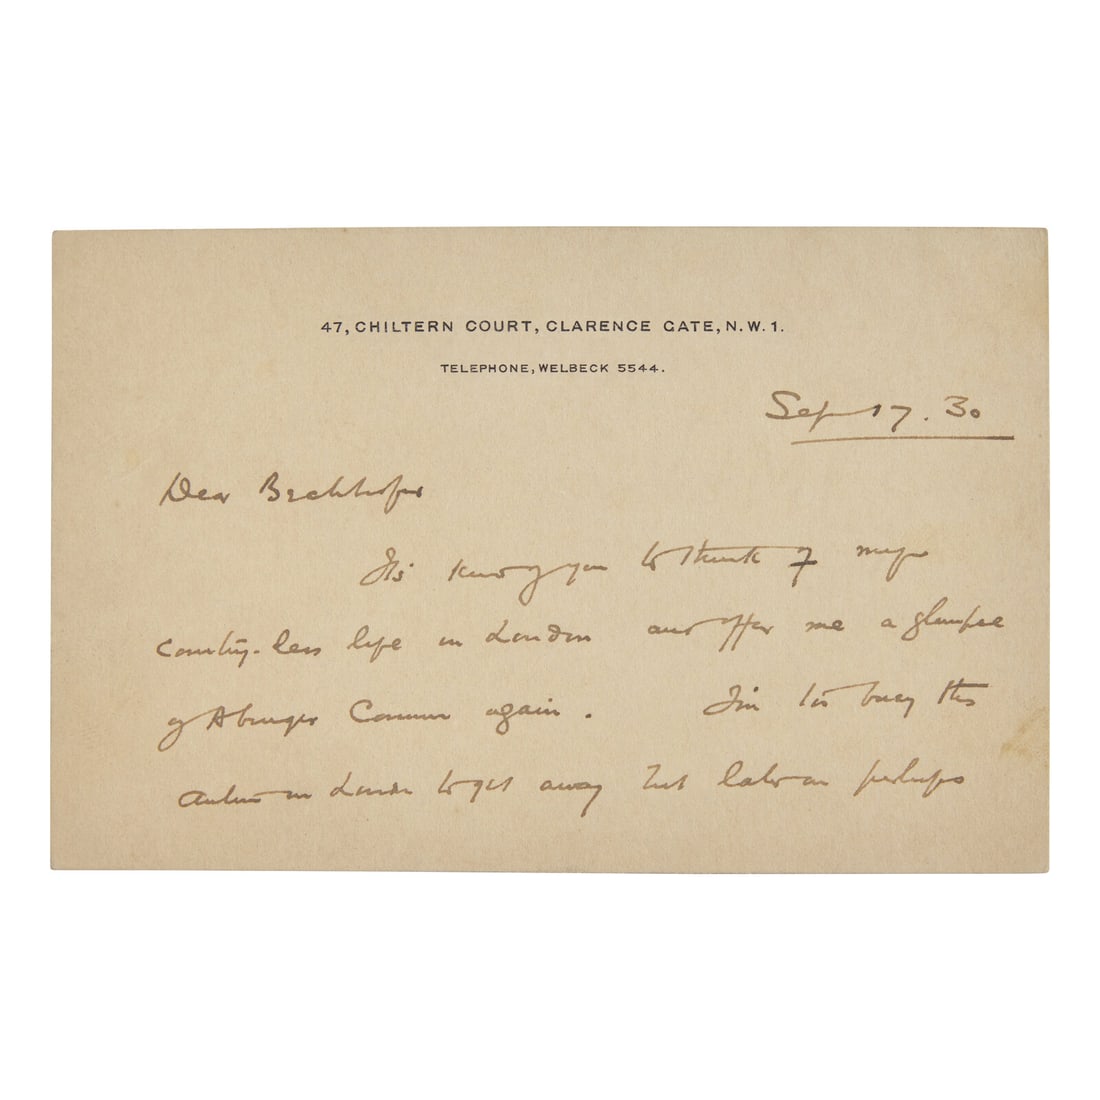 47, CHILTERN COURT, CLARENCE GATE, N.W.1.
TELEPHONE, WELBECK 5544.
Sep 17. 30
Dear Bechhofer
It's kind of you to think of my
country-less life in London and offer me a glimpse
of Abinger Common again. I'm too busy this
autumn in London to get away but later on perhaps